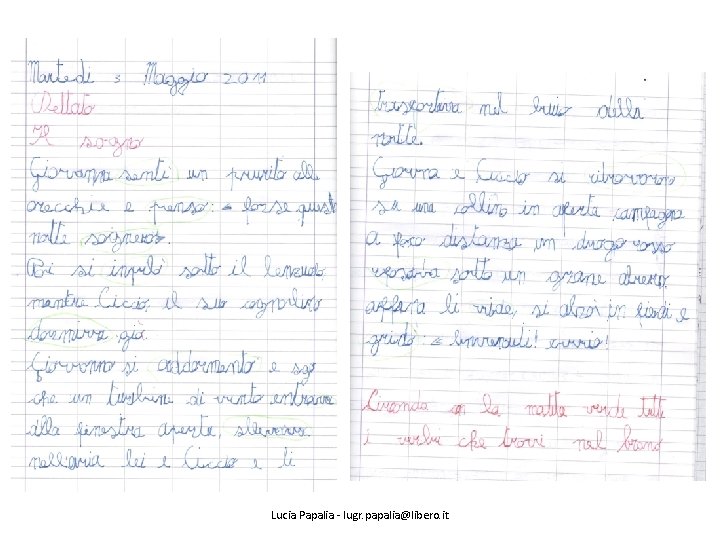 Martedì 3 Maggio 2011
Dettato
Il sogno
Giovanna sentì un prurito alle
orecchie e penso: - forse questa
notte sognerò.
Poi si infilò sotto il lenzuolo
mentre Ciccio, il suo cagnolino
dormiva già.
Giovanna si addormentò e sognò
che un turbine di vento entrava
dalla finestra aperta, sollevava
nell'aria lei e Ciccio e li
trasportava nel buio della
notte.
Giovanna e Ciccio si ritrovarono
su una collina in aperta campagna
A poca distanza un drago rosso
riposava sotto un grane albero,
appena li vide, si alzò in piedi e
gridò: - benvenuti! evviva!
Circonda con la matita verde tutti
i verbi che trovi nel brano
Lucia Papalia - lugr.papalia@libero.it